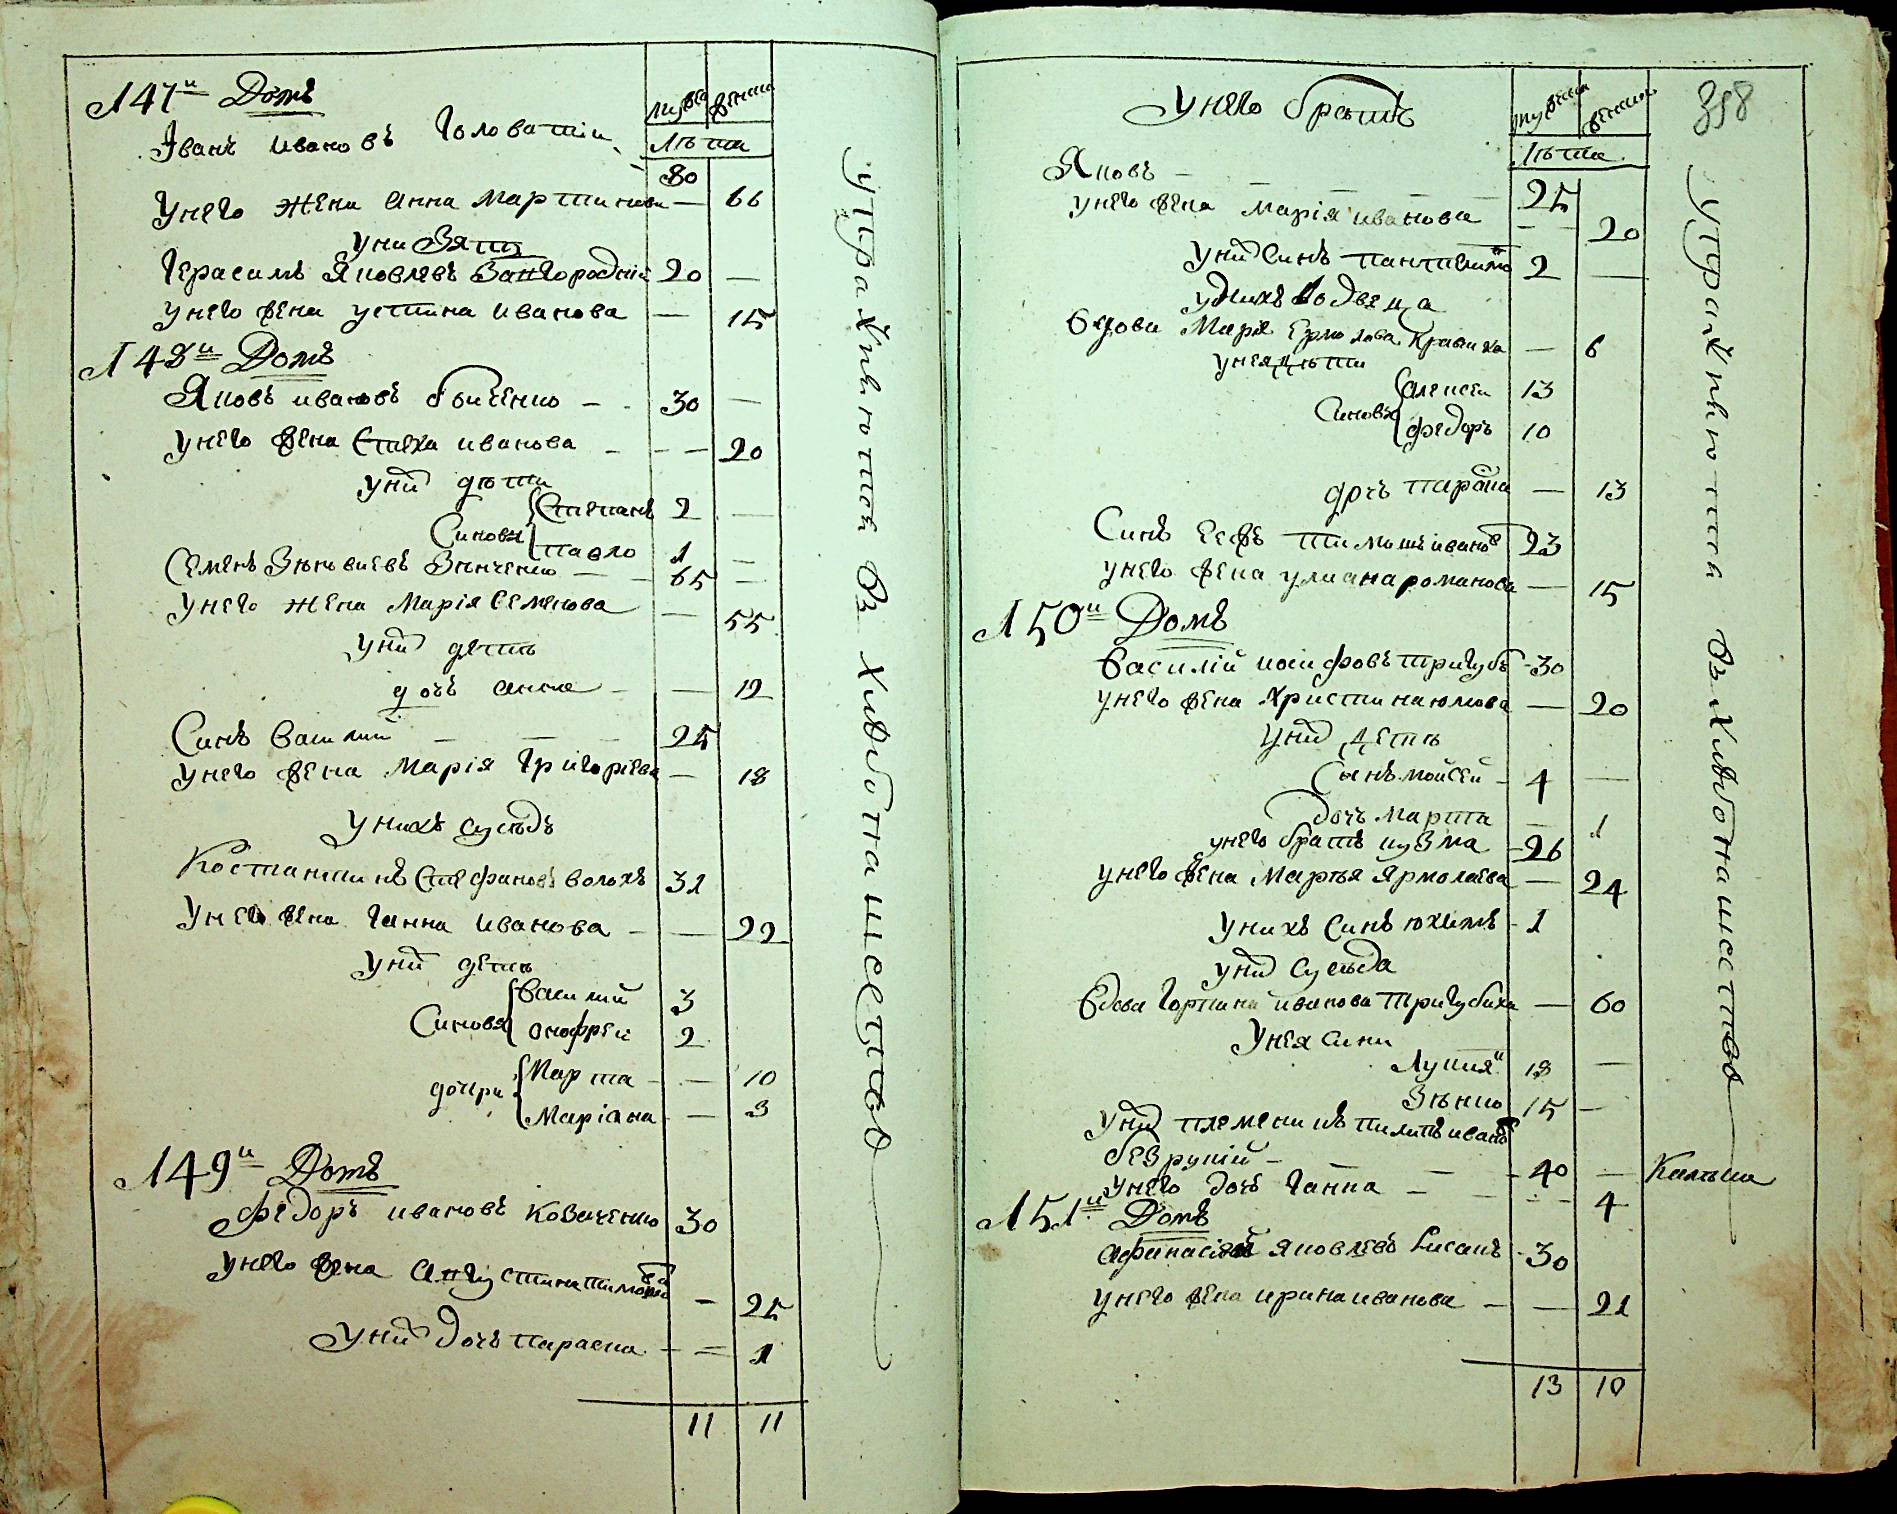 147й Домъ
мужеска женска
Лѣта
Іванъ Ивановъ Головатій
80
Унего жена Анна Мартинова — 66
Уни Зять
Герасимъ Яковлевъ Зайгородній 20 —
Унего жена Устина Иванова — 15
148й Домъ
Яковъ Ивановъ Бойченко — 30 —
Унего жена Стеха Иванова — 20
Уних дѣти
Синовя Степанъ 2 —
Павло 1 —
Семенъ Зѣновиевъ Зѣнченко — 65 —
Унего жена Марія Семенова — 55
Уних дети
дочь Анна — 12
Синъ Василий — 25
Унего жена Марія Григориева — 18
Унихъ сусѣдъ
Костантинъ Стефановъ Волохъ 31
Унего жена Ганна Иванова — 22
Уних дети
Синовя Василий 3
Онофрей 2
дочери Марта — 10
Маріана — 3
149й Домъ
Федоръ Ивановъ Коваченко 30
Унего жена Августина — 25
Уних дочь Параска — 1
11 11
Упражнаются въ хлѣбопашестве
Унего братъ
мужеска женска
358
Лѣта
Яковъ — 25
Унего жена Марія Иванова — 20
Уних синъ Пантелимо 2 —
Уних
Вдова Марія Ермолова Кравчиха — 6
Унея дѣти
Синовя Алексей 13
Федоръ 10
дочь Параска — 13
Синъ Тимошъ Иванов 23
Унего жена Улиана Романова — 15
150й Домъ
Василій Иосифовъ Тригубъ — 30
Унего жена Христина — 20
Уних дети
Сынъ Мойсей — 4 —
Дочь Марта — 1
Унего братъ Кузма — 26
Унего жена Марья Ярмолаева — 24
Унихъ синъ Юхимъ — 1
Уних сусѣда
Вдова Горпина Иванова Тригубиха — 60
Унея сини
Лукия 18 —
Зѣнко 15 —
Уних племеникъ Пилипъ Иванов
Безрукій — 40 — Калѣка
Унего дочь Ганна — 4
151й Домъ
Афанасій Яковлевъ Лисакъ — 30
Унего жена Ирина Иванова — 21
13 10
Упражнаются въ хлѣбопашестве